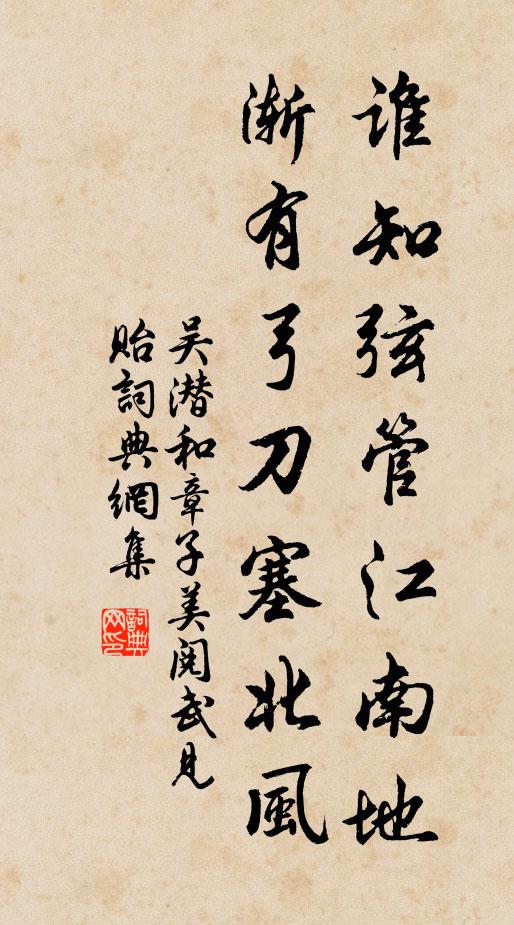 誰知弦管江南地
漸有弓刀塞北風
吴潜和章子美閱武見
貽詞典網集
詞典
网印